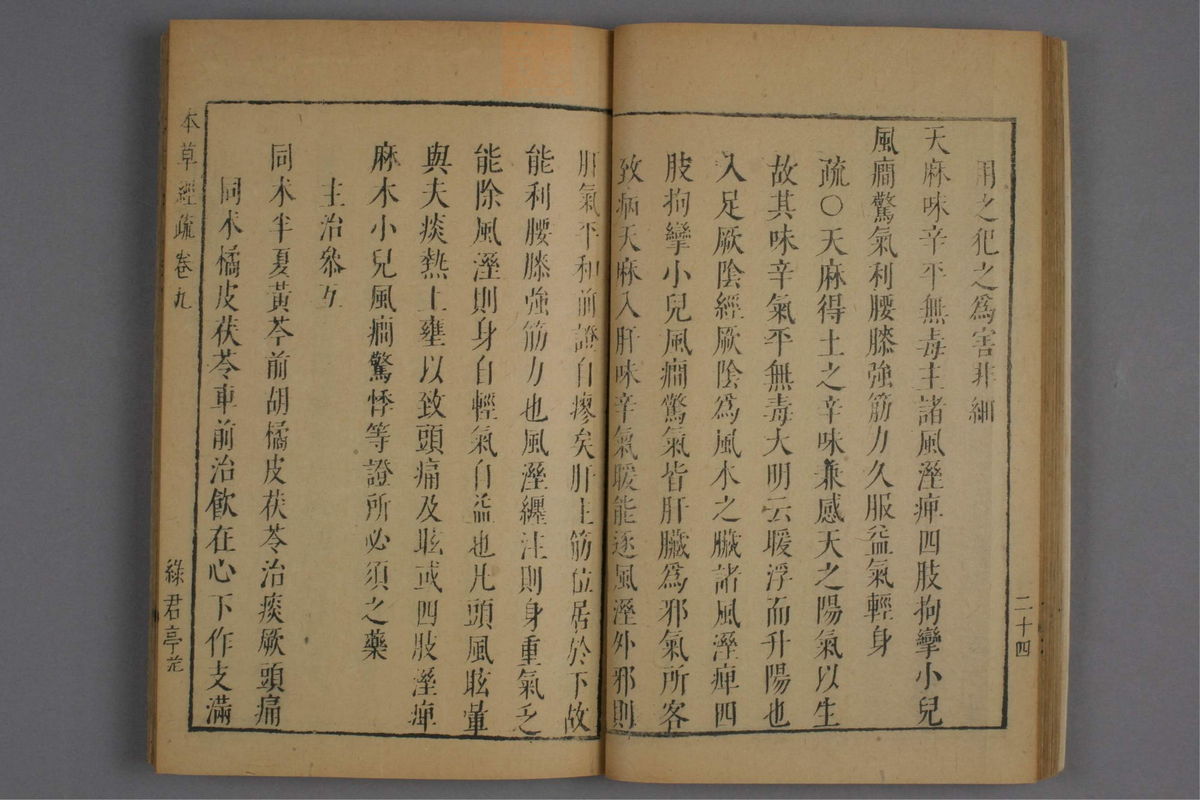 用之犯之為害非細
天麻味辛平無毒主諸風溼痺四肢拘攣小兒
風癎驚氣利腰膝強筋力久服益氣輕身
疏○天麻得土之辛味兼感天之陽氣以生
故其味辛氣平無毒大明云暖浮而升陽也
入足厥陰經厥陰為風木之臟諸風溼痺四
肢拘攣小兒風癎驚氣皆肝臟為邪氣所客
致病天麻入肝味辛氣暖能逐風溼外邪則
肝氣平和前證自瘳矣肝主筋位居於下故
能利腰膝強筋力也風溼纏注則身重氣乏
能除風溼則身自輕氣自益也凡頭風眩暈
與夫痰熱上壅以致頭痛及眩或四肢溼痺
麻木小兒風癎驚悸等證所必須之藥
主治叅互
同朮半夏黃芩前胡橘皮茯苓治痰厥頭痛
同朮橘皮茯苓車前治飲在心下作支滿
二十四
本草經疏卷九
綠君亭